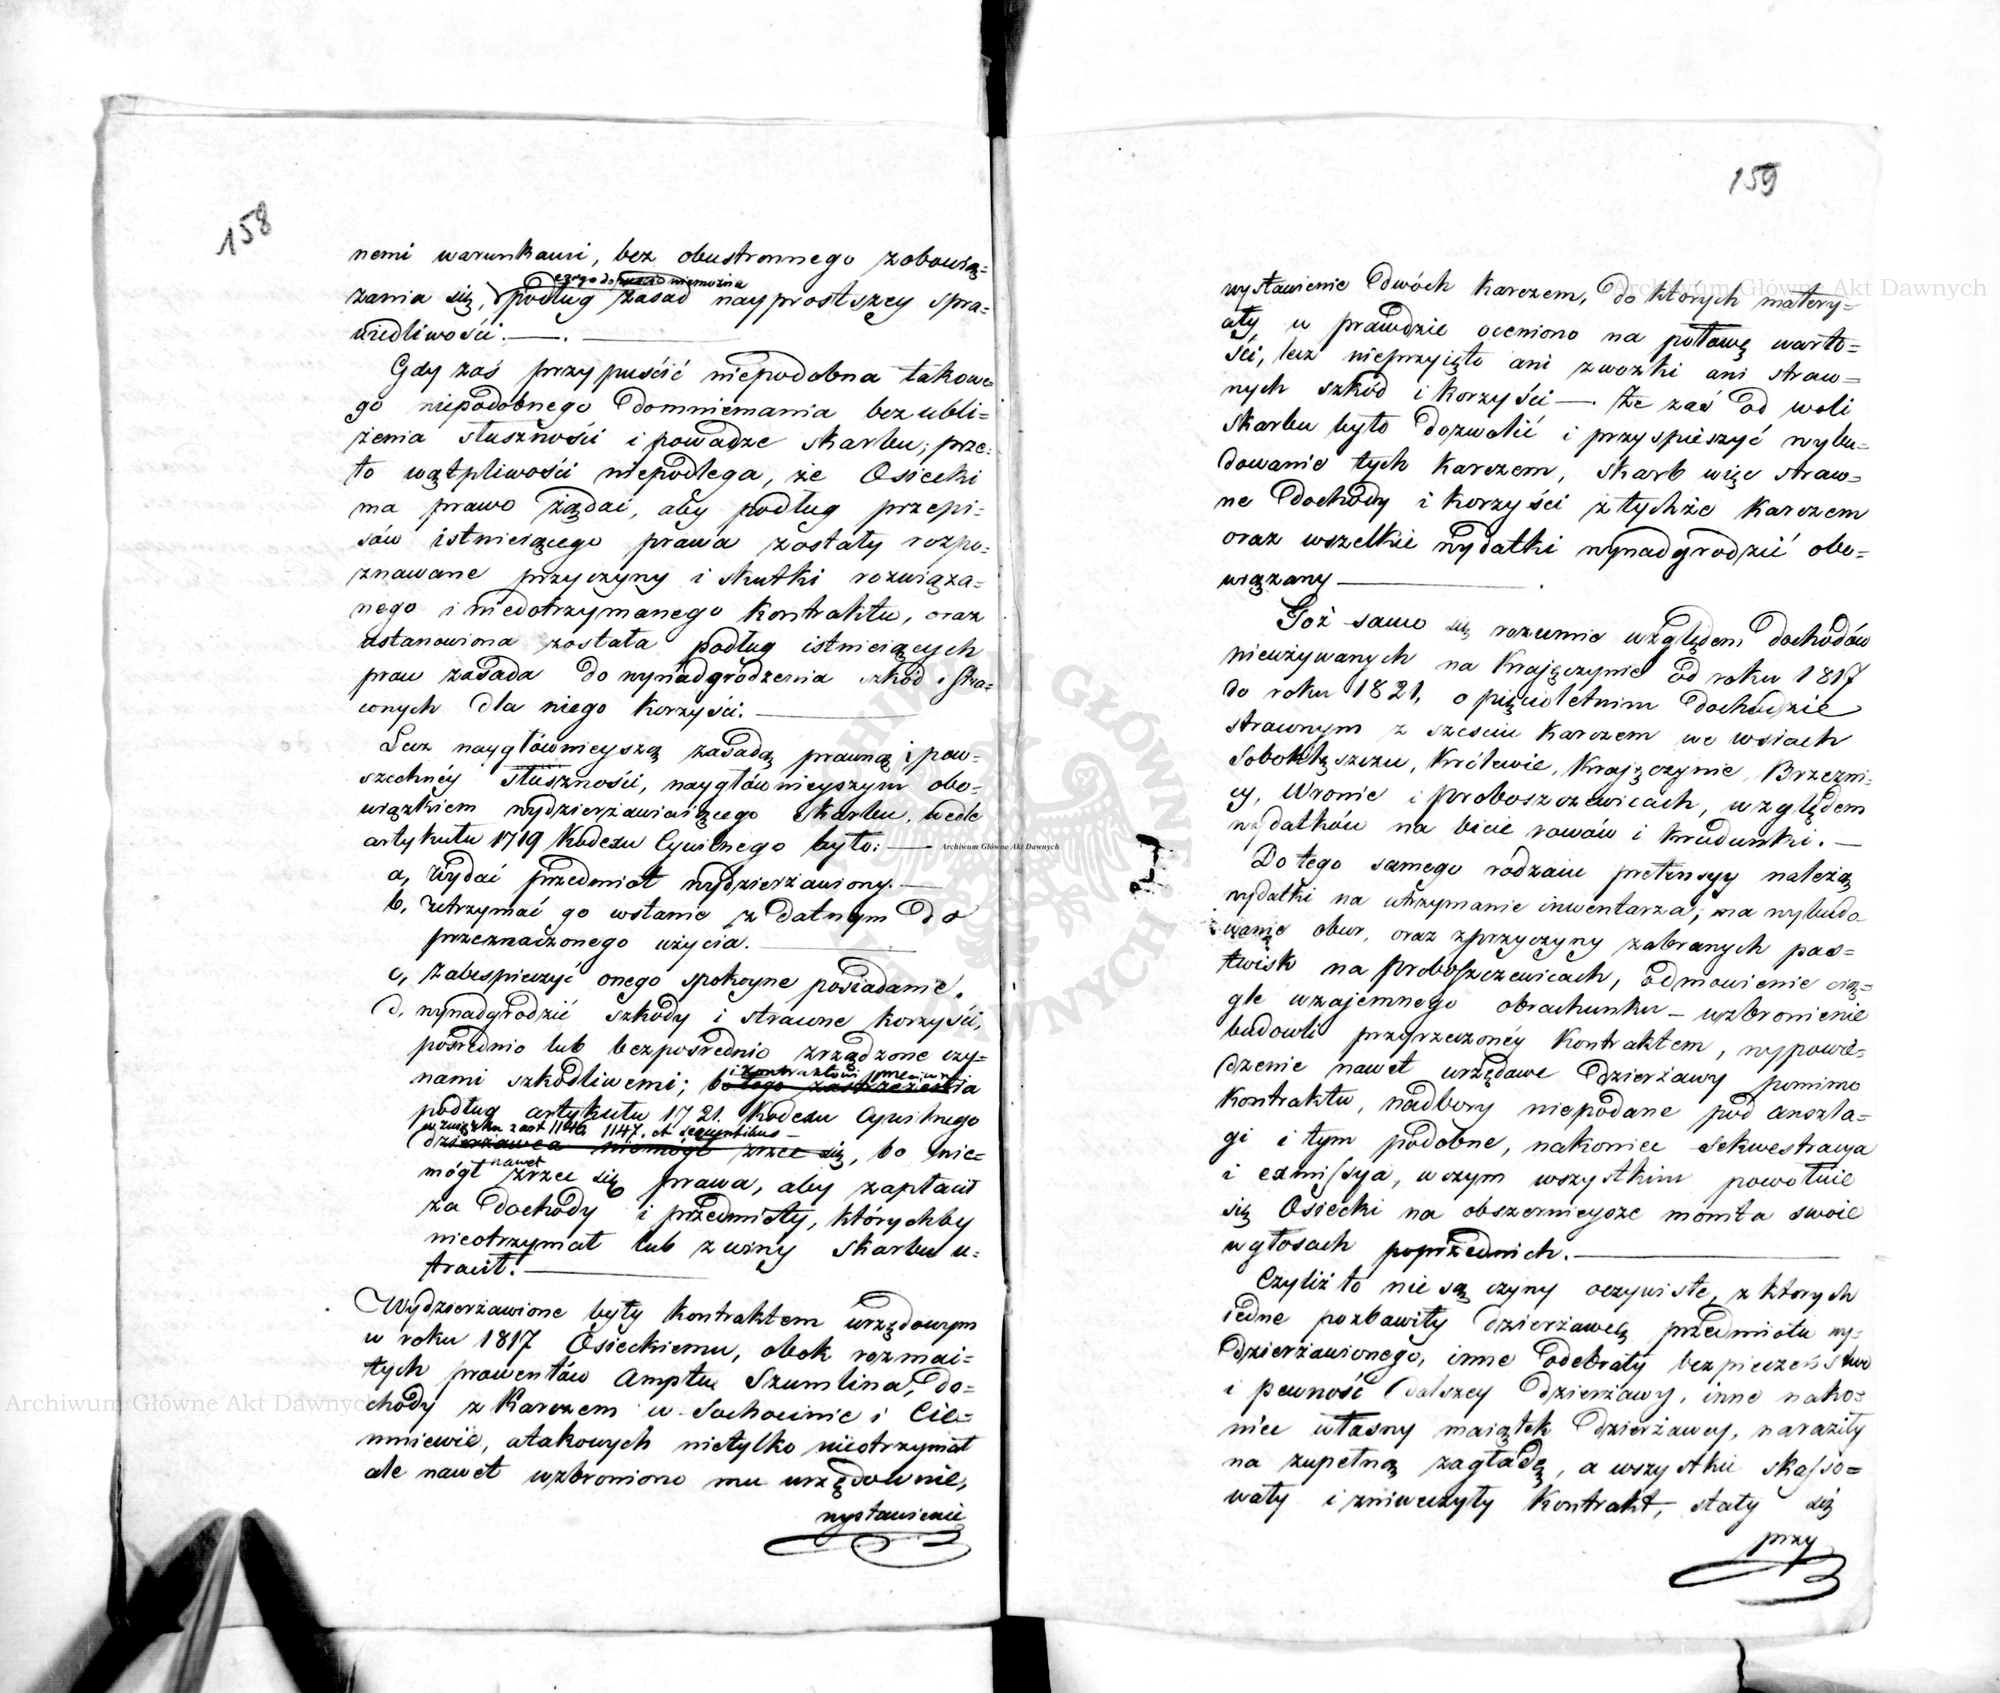 158
nemi warunkami, bez obustronnego zobowią=
czego dopuścić niemożna
zania się, podług zasad nayprostszey spra=
wiedliwości. —.
Gdy zaś przypuścić niepodobna takowe=
go niepodobnego domniemania bez ubli=
żenia słuszności i powadze skarbu; prze=
to wątpliwości niepodlega, że Osiecki
ma prawo żądać, aby podług przepi=
sów istnieiącego prawa zostały rozpo=
znawane przyczyny i skutki rozwiąza=
nego i niedotrzymanego kontraktu, oraz
ustanowiona została podług istnieiących
praw zasada do wynadgrodzenia szkód i stra=
conych dla niego korzyści. —
Lecz naygłównieyszą zasadą prawną i pow=
szechnéy słuszności, naygłównieyszym obo=
wiązkiem wydzierżawiaiącego skarbu, wedle
artykułu 1719 Kodexu Cywilnego było: —
a, Wydać przedmiot wydzierżawiony. —
b, Utrzymać go w stanie zdatnym do
przeznaczonego użycia. —
c, Zabespieczyć onego spokoyne posiadanie.
d, wynadgrodzić szkody i stracone korzyści,
pośrednio lub bezpośrednio zrządzone czy=
i kontraktowi
nami szkodliwemi; bo tego zastrzeżenia
podług artykułu 1721. Kodexu Cywilnego
w związku z art 1146 1147. et sequentibus —
dzierżawca niemógł zrzec się, bo nie=
nawet
mógł zrzec się prawa, aby zapłacił
za dochody i przedmioty, którychby
nieotrzymał lub z winy skarbu u=
tracił. —
Wydzierżawione były kontraktem urzędowym
w roku 1817 Osieckiemu, obok rozmai=
tych prowentów Amptu Szumlina, do=
chody z karczem w Sochocinie i Cie=
mniewie, a takowych nietylko nieotrzymał
ale nawet wzbroniono mu urzędownie,
wystawienie
159
wystawienie dwóch karczem, do których matery=
ały w prawdzie oceniono na połowę warto=
ści, lecz nieprzyięto ani zwózki ani straw=
nych szkód i korzyści — Że zaś od woli
skarbu było dozwolić i przyspieszyć wybu=
dowanie tych karczem, skarb więc straw=
ne dochody i korzyści z tychże karczem
oraz wszelkie wydatki wynadgrodzić obo=
wiązany —.
Toż samo się rozumie względem dochodów
nieużywanych na Kraięczynie od roku 1817
do roku 1821, o pięcioletnim dochodzie
strawnym z sześciu karczem we wsiach
Sobokleszczu, Królewie, Krajęczynie, Brzezni=
cy, Wronie i Proboszczewicach, względem
wydatków na bicie rowów i kradunki. —
Do tego samego rodzaiu pretensyy należą
wydatki na utrzymanie inwentarza, na wybudo
wanie obor, oraz z przyczyny zabranych pas=
twisk na Proboszczewicach, odmowienie cią=
głe wzajemnego obrachunku — wzbronienie
budowli przyrzeczonéy kontraktem, wypowie=
dzenie nawet urzędowe dzierżawy pomimo
kontraktu, nadbory niepodane pod anszla=
gi i tym podobne, nakoniec sekwestracya
i exmissya, w czym wszystkim powołuie
się Osiecki na obszernieysze monita swoie
w głosach poprzednich. —
Czyliż to nie są czyny oczywiste, z których
iedne pozbawiły dzierżawcę przedmiotu wy=
dzierżawionego, inne odebrały bezpieczeństwo
i pewność dalszey dzierżawy, inne nako=
niec własny maiątek dzierżawcy, naraziły
na zupełną zagładę, a wszystkie skasso=
wały i zniweczyły kontrakt, stały się
przy
Archiwum Główne Akt Dawnych